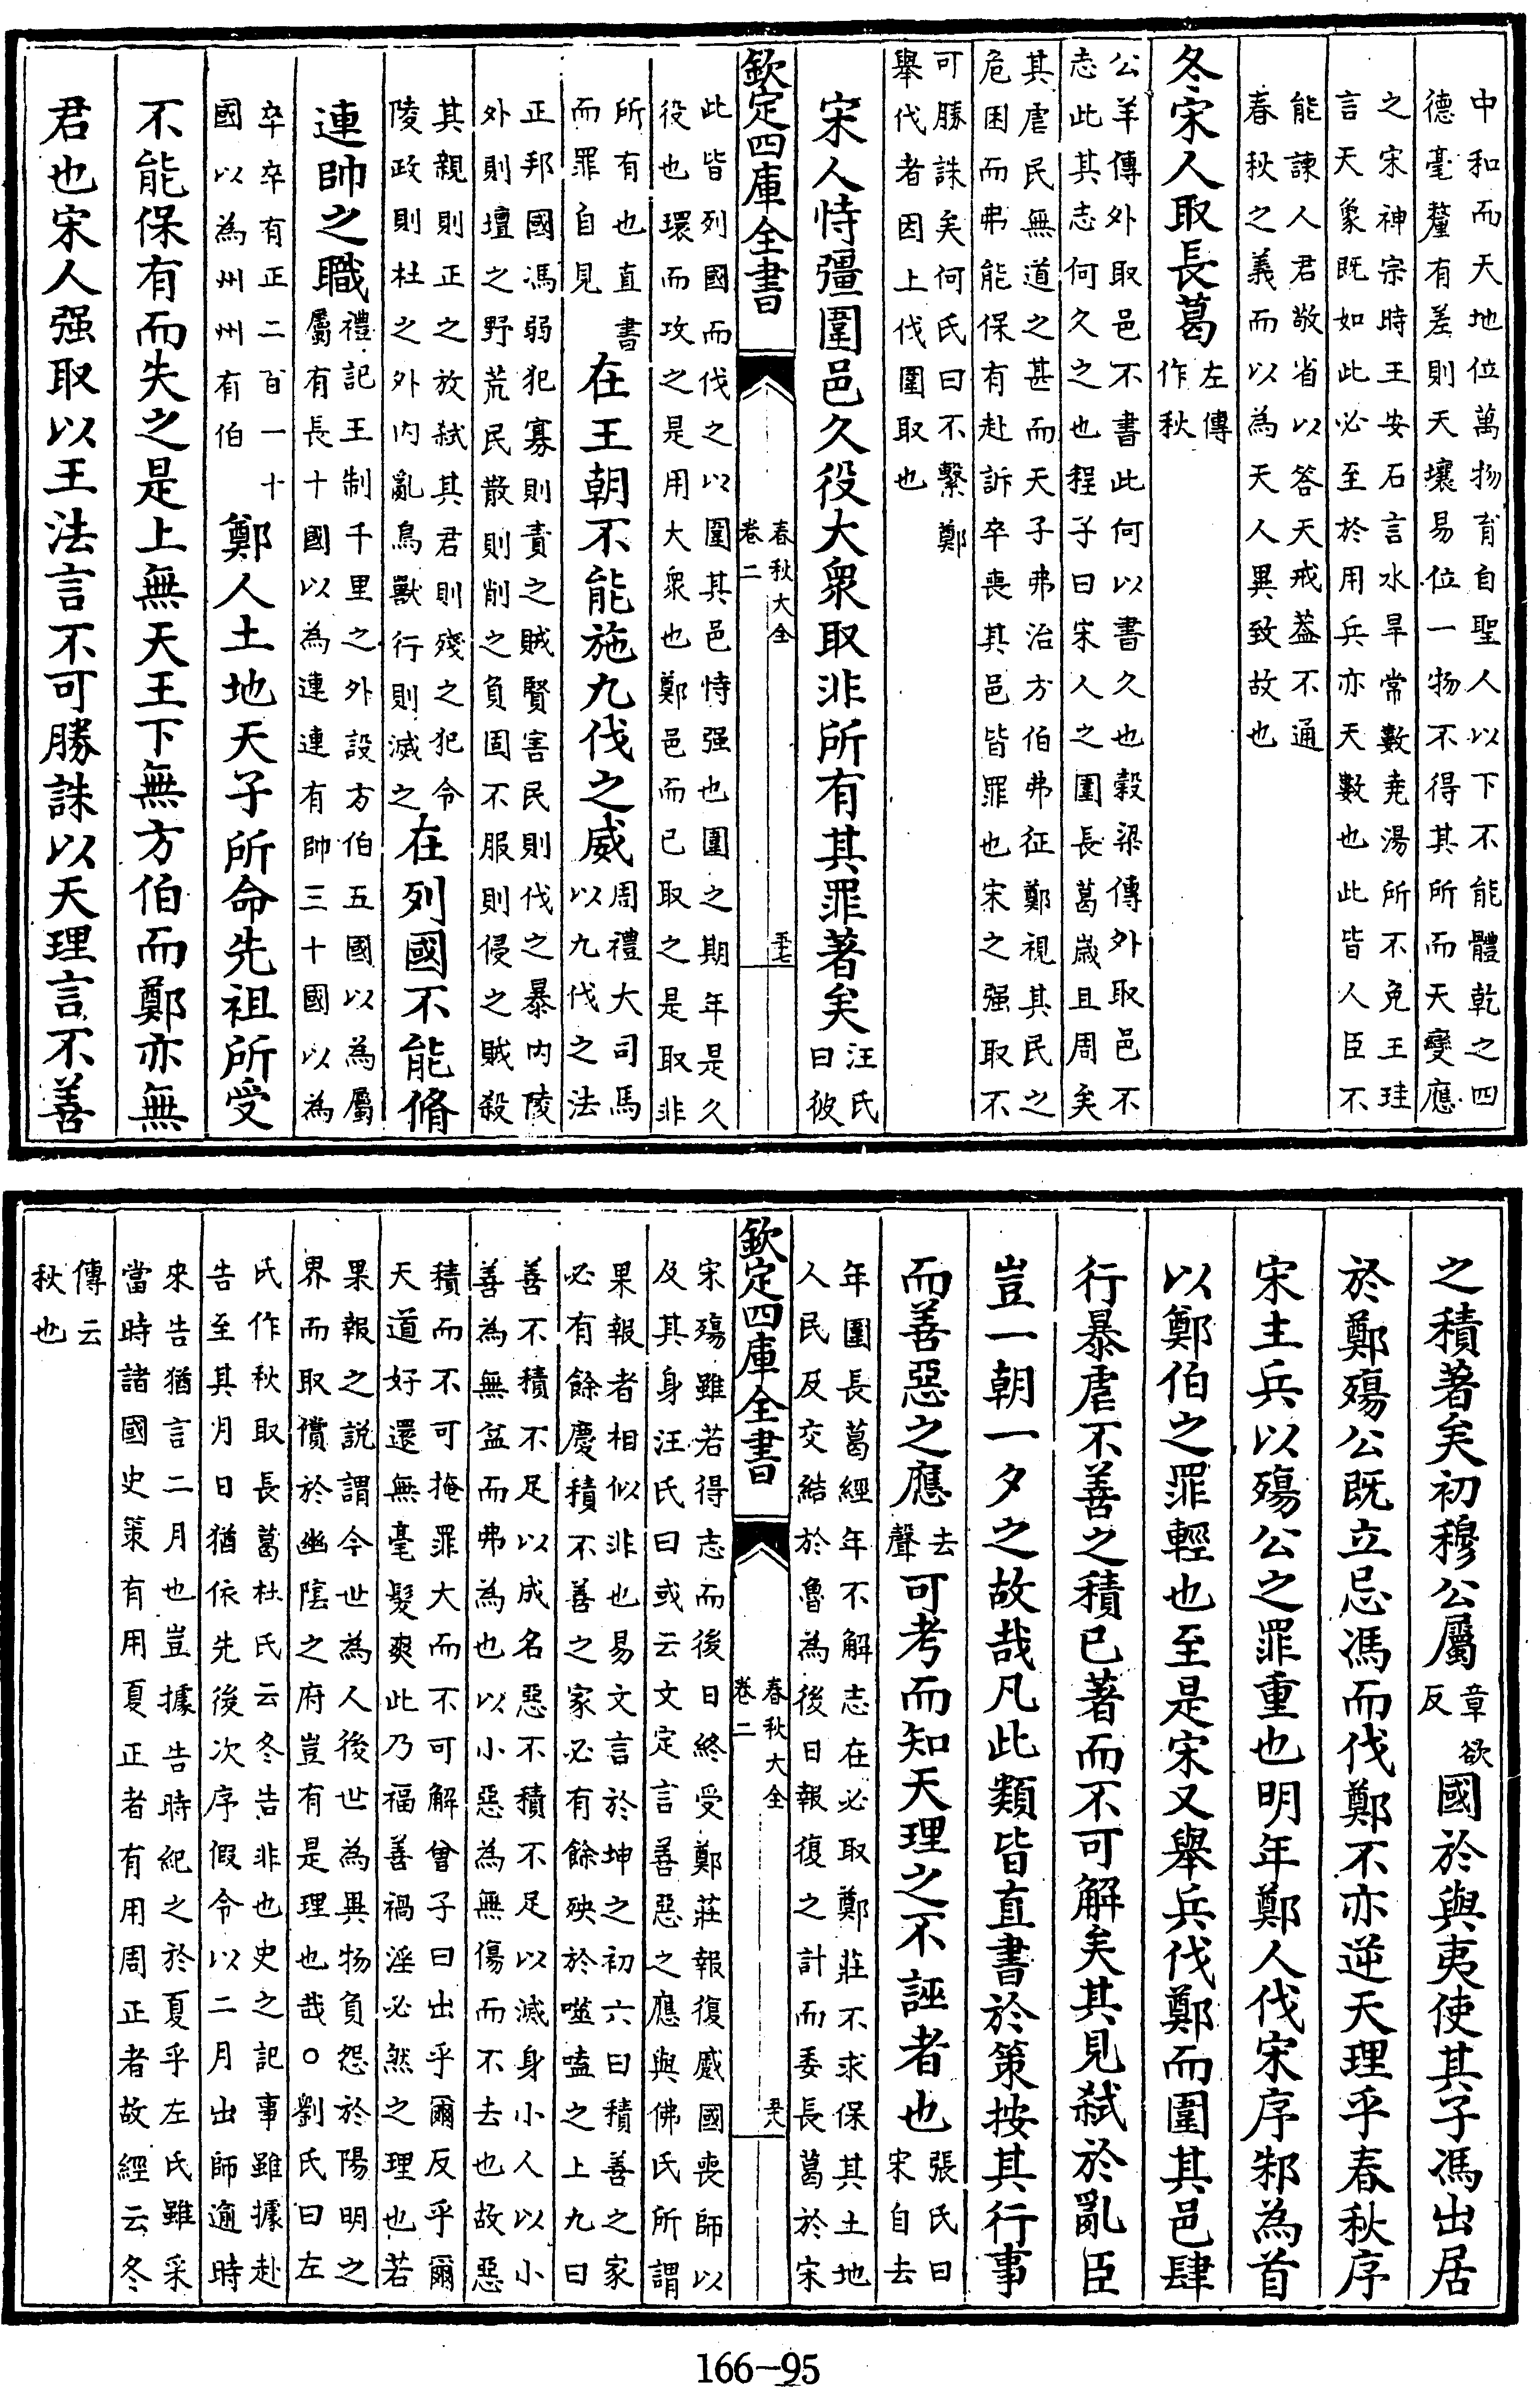 中和而天地位萬物育自聖人以下不能體乾之四
德毫釐有差則天壤易位一物不得其所而天變應
之宋神宗時王安石言水旱常數堯湯所不免王珪
言天象既如此必至於用兵亦天數也此皆人臣不
能諫人君敬省以答天戒葢不通
春秋之義而以為天人異致故也
冬宋人取長葛左傳作秋
公羊傳外取邑不書此何以書久也榖梁傳外取邑不
志此其志何久之也程子曰宋人之圍長葛歲且周矣
其虐民無道之甚而天子弗治方伯弗征鄭視其民之
危困而弗能保有赴訴卒喪其邑皆罪也宋之强取不
可勝誅矣何氏曰不繫鄭
舉伐者因上伐圍取也
宋人恃彊圍邑久役大衆取非所有其罪著矣汪氏曰彼
欽定四庫全書
春秋大全
卷二
五十七
此皆列國而伐之以圍其邑恃强也圍之期年是久
役也環而攻之是用大衆也鄭邑而已取之是取非
所有也直書而罪自見在王朝不能施九伐之威周禮大司馬以九伐之法
正邦國馮弱犯寡則責之賊賢害民則伐之暴内陵
外則壇之野荒民散則削之負固不服則侵之賊殺
其親則正之放弑其君則殘之犯令陵政則杜之外内亂鳥獸行則滅之在列國不能脩
連帥之職禮記王制千里之外設方伯五國以為屬屬有長十國以為連連有帥三十國以為
卒卒有正二百一十國以為州州有伯鄭人土地天子所命先祖所受
不能保有而失之是上無天王下無方伯而鄭亦無
君也宋人强取以王法言不可勝誅以天理言不善
之積著矣初穆公屬章欲反國於與夷使其子馮出居
於鄭殤公既立忌馮而伐鄭不亦逆天理乎春秋序
宋主兵以殤公之罪重也明年鄭人伐宋序邾為首
以鄭伯之罪輕也至是宋又舉兵伐鄭而圍其邑肆
行暴虐不善之積已著而不可解矣其見弑於亂臣
豈一朝一夕之故哉凡此類皆直書於策按其行事
而善惡之應去聲可考而知天理之不誣者也張氏曰宋自去
年圍長葛經年不解志在必取鄭莊不求保其土地
人民及交結於魯為後日報復之計而委長葛於宋
欽定四庫全書
春秋大全
卷二
五十八
宋殤雖若得志而後日終受鄭莊報復慼國喪師以
及其身汪氏曰或云文定言善惡之應與佛氏所謂
果報者相似非也易文言於坤之初六曰積善之家
必有餘慶積不善之家必有餘殃於噬嗑之上九曰
善不積不足以成名惡不積不足以滅身小人以小
善為無益而弗為也以小惡為無傷而不去也故惡
積而不可掩罪大而不可解曾子曰出乎爾反乎爾
天道好還無毫髮爽此乃福善禍淫必然之理也若
果報之説謂今世為人後世為異物負怨於陽明之
界而取償於幽隂之府豈有是理也哉○劉氏曰左
氏作秋取長葛杜氏云冬告非也史之記事雖據赴
告至其月日猶依先後次序假令以二月出師逾時
來告猶言二月也豈據告時紀之於夏乎左氏雖采
當時諸國史策有用夏正者有用周正者故經云冬
傳云
秋也
166-95